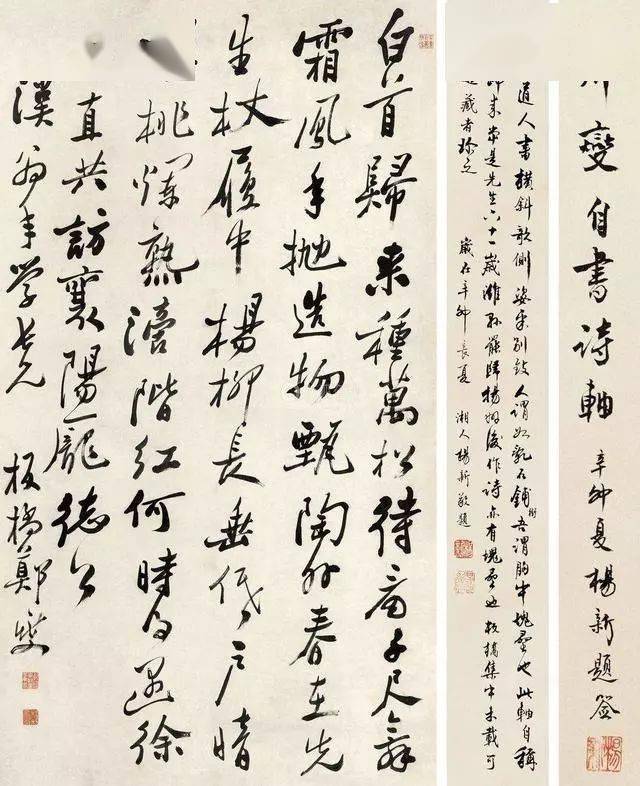 燮自書詩軸 辛卯夏楊新題簽
道人書橫斜欹側姿態別致人謂如亂石鋪街吾謂胸中塊壘也此軸自稱
歸來當是先生六十一歲濰縣罷歸揚州後作詩亦有塊壘也板橋集中未載可
藏者珍之 歲在辛卯長夏 湘人楊新敬題
白首歸來種萬松待看千尺舞
霜風年拋造物甄陶外春在先
生杖履中楊柳長垂低戶暗
桃爛熟滴階紅何時得遇徐
直共訪襄陽龐德公
漢翁年學老兄 板橋鄭燮